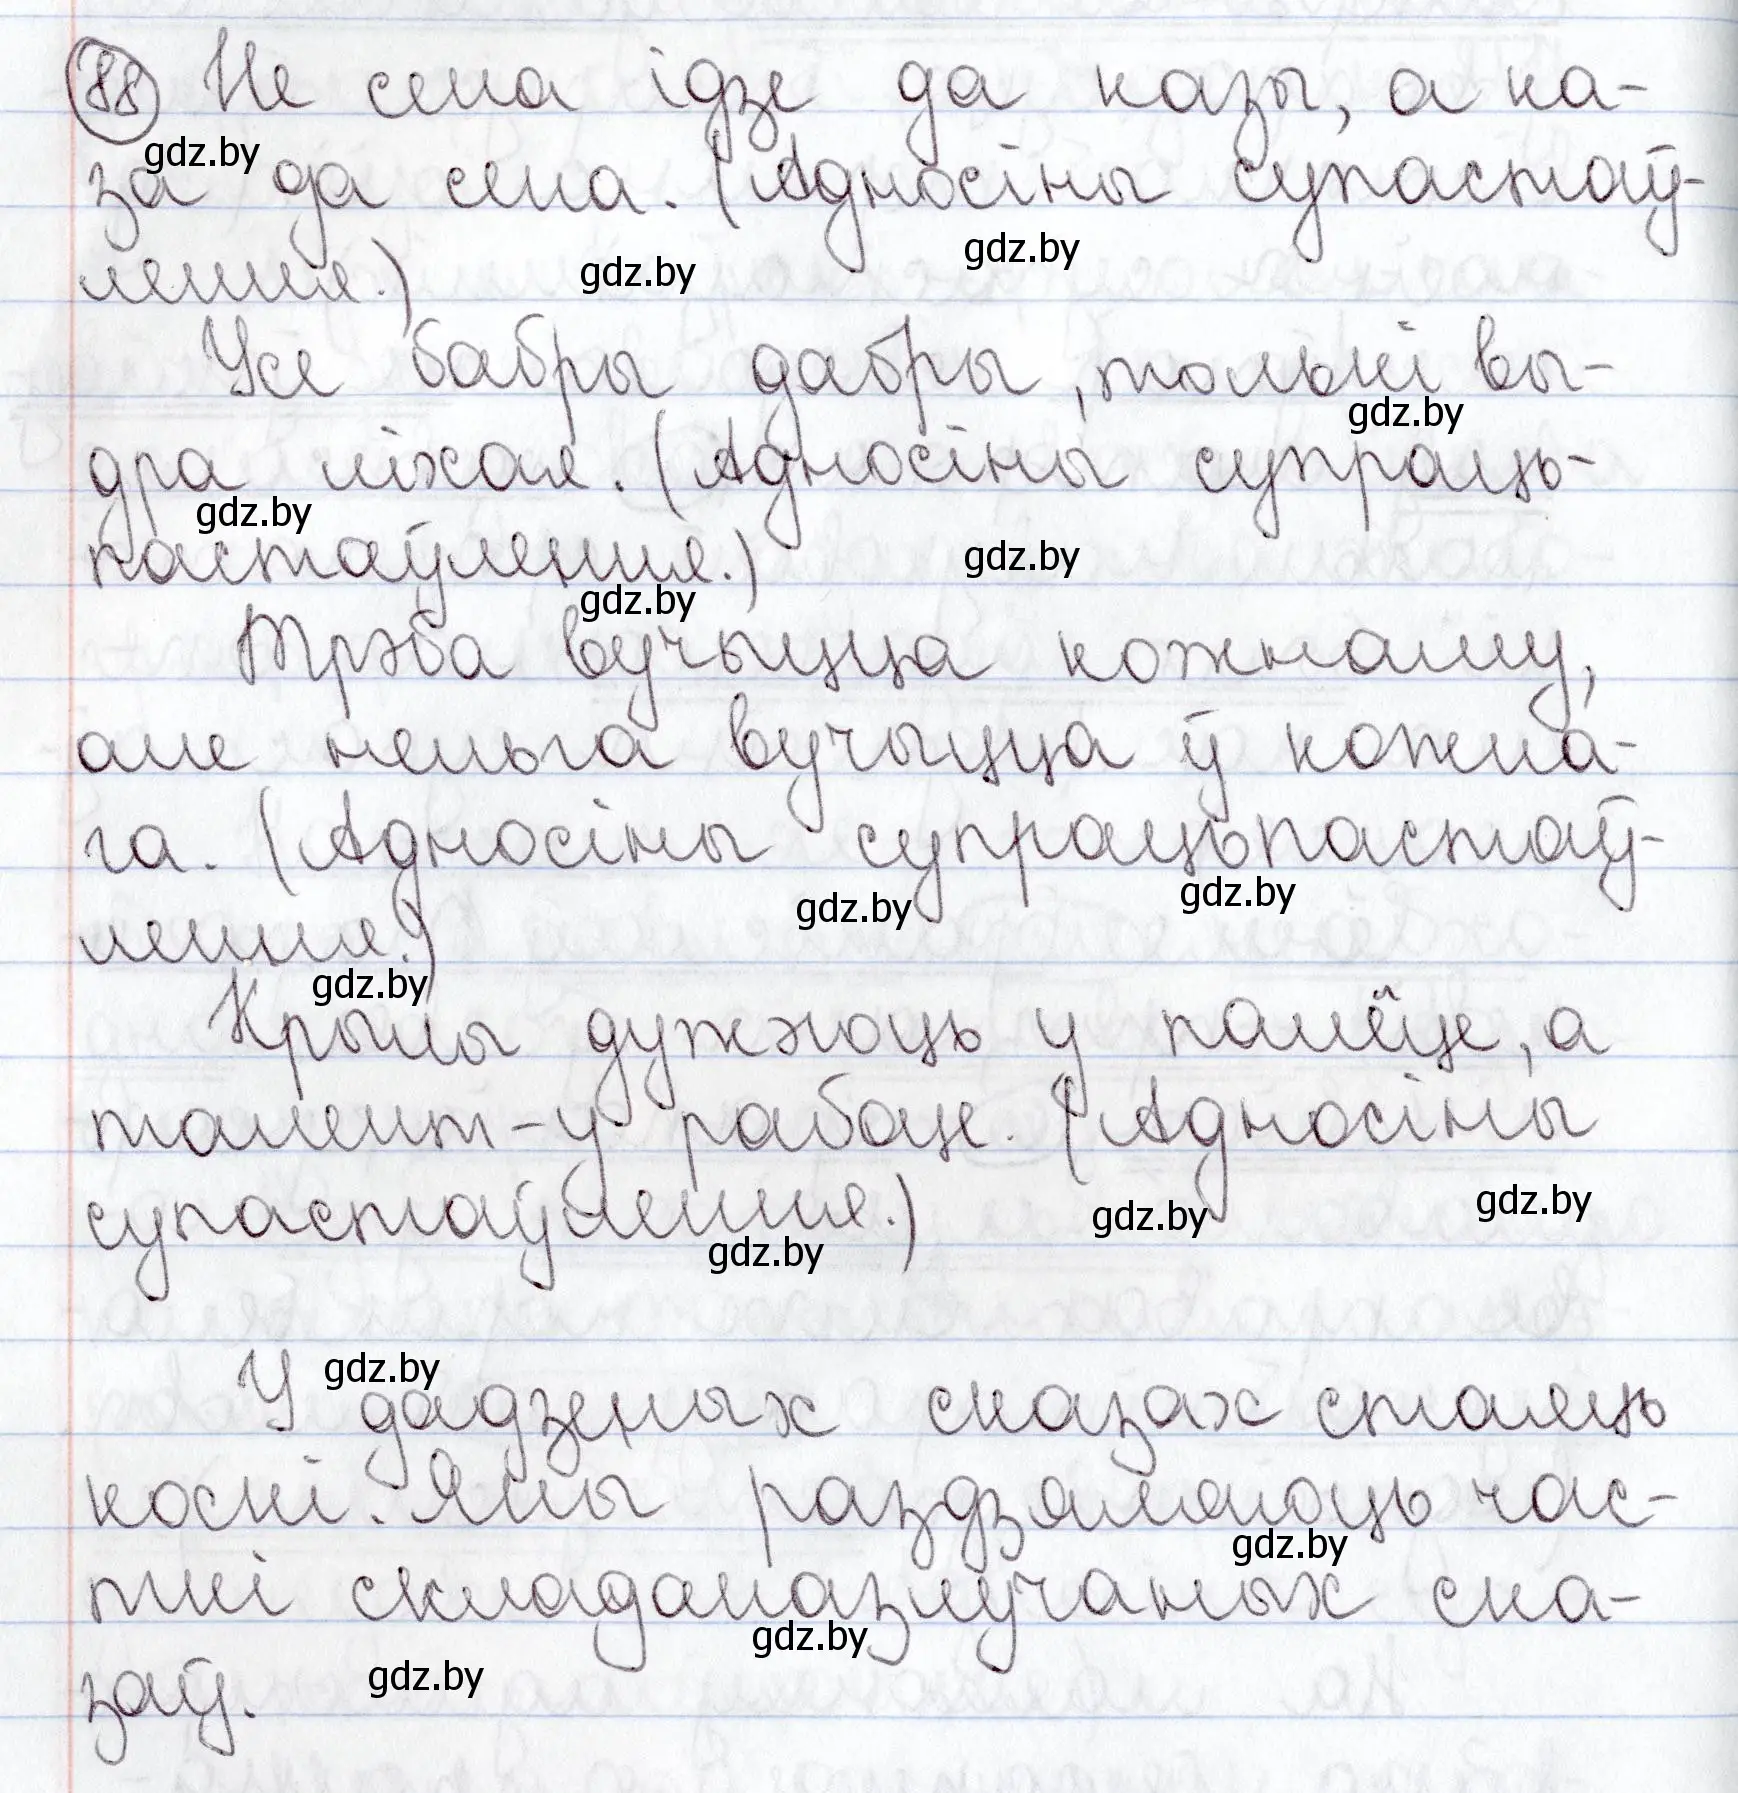 88 Не сена ідзе да казы, а ка-
gdz.by
за да сена. (Адносіны супастаў-
gdz.by
лення.)
gdz.by
Усе бабры дабры, толькі вы-
gdz.by
дра ліхая. (Адносіны супраць-
gdz.by
пастаўлення.)
gdz.by
gdz.by
Трэба вучыцца кожнаму,
але нельга вучыцца ў кожна-
га. (Адносіны супрацьпастаў-
gdz.by gdz.by
лення.)
gdz.by
Крылы дужэюць у палёце, а
талент - у рабоце. (Адносіны
супастаўлення.)
gdz.by gdz.by
gdz.by
gdz.by
У дадзеных сказах стаяць
коскі. Яны раздзяляюць час-
gdz.by
ткі складаназлучаных ска-
gdz.by
заў.
gdz.by